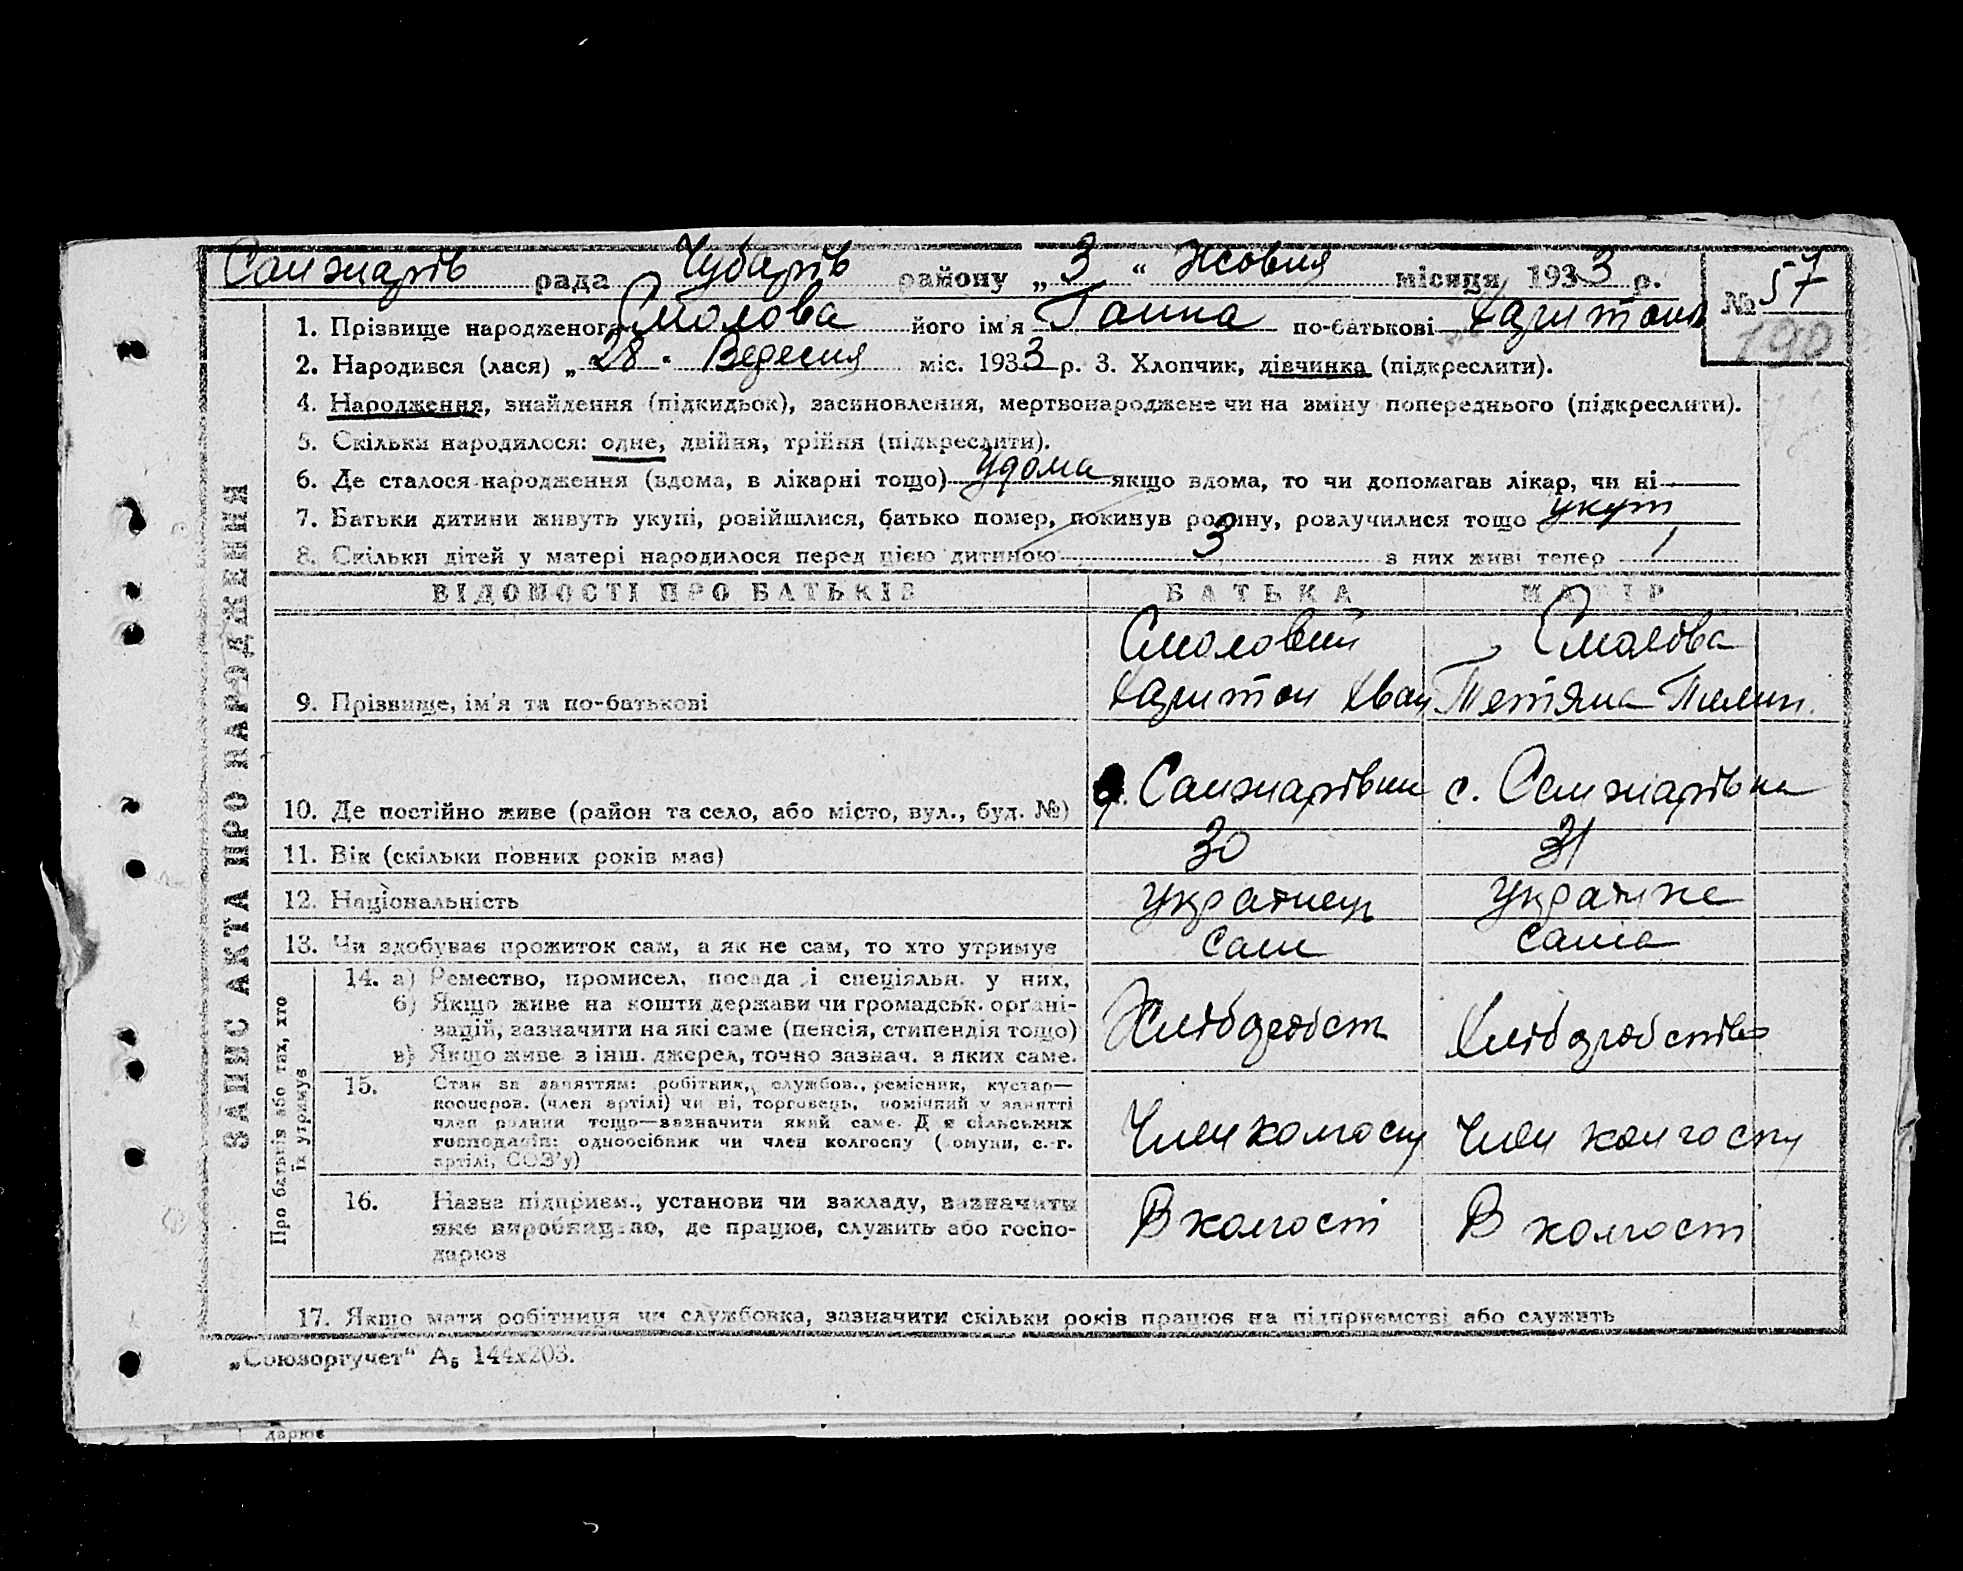 Санжарів рада Чубарів району „3“ Жовня місяця 1933 р. № 57
190
1. Прізвище народженого Смолова його ім'я Ганна по-батькові Харитонів
2. Народився (лася) „28“ Вересня міс. 1933 р. 3. Хлопчик, дівчинка (підкреслити).
4. Народження, знайдення (підкидьок), засиновлення, мертвонароджене чи на зміну попереднього (підкреслити).
5. Скільки народилося: одне, двійня, трійня (підкреслити).
6. Де сталося народження (вдома, в лікарні тощо) Удома якщо вдома, то чи допомагав лікар, чи ні —
7. Батьки дитини живуть укупі, розійшлися, батько помер, покинув родину, розлучилися тощо укуп
8. Скільки дітей у матері народилося перед цією дитиною 3 з них живі тепер 1
ЗАПИС АКТА ПРО НАРОДЖЕННЯ
ВІДОМОСТІ ПРО БАТЬКІВ БАТЬКА МАТІР
Смоловий Смолова
9. Прізвище, ім'я та по-батькові Харитон Іван Тетяна Пилип.
10. Де постійно живе (район та село, або місто, вул., буд. №) с. Санжарівка с. Санжарівка
11. Вік (скільки повних років має) 30 31
12. Національність українець українке
13. Чи здобуває прожиток сам, а як не сам, то хто утримує сам сама
Про батьків або тих, хто їх утримує
14. а) Ремество, промисел, посада і спеціяльн. у них,
б) Якщо живе на кошти держави чи громадськ. органі-
зацій, зазначити на які саме (пенсія, стипендія тощо) Хліборобст Хліборобство
в) Якщо живе з інш. джерел, точно зазнач. з яких саме.
15. Стан за заняттям: робітник, службов., ремісник, кустар—
кооперов. (член артілі) чи ні, торговець, помічний у занятті
член родини тощо—зазначити який саме. Для сільських
господарів: одноосібник чи член колгоспу (комуни, с.-г. Член колгоспу Член колгоспу
артілі, СОЗ'у)
16. Назва підприєм., установи чи закладу, зазначити
яке виробництво, де працює, служить або госпо- В колгості В колгості
дарює
17. Якщо мати робітниця чи службовка, зазначити скільки років працює на підприємстві або служить
„Союзоргучет“ А₅ 144х203.
дарює